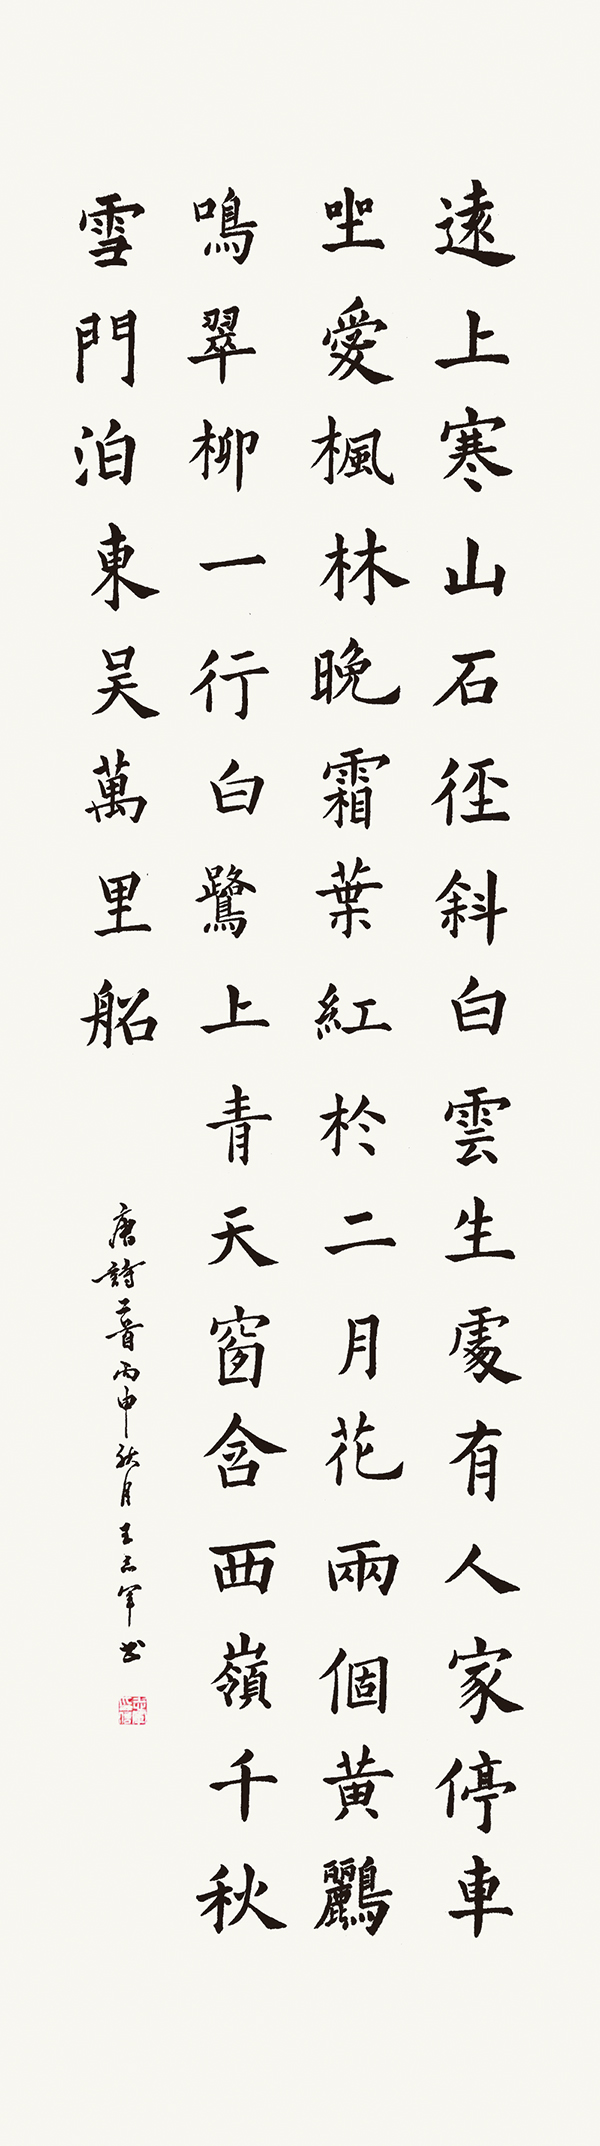 遠上寒山石徑斜白雲生處有人家停車
坐愛楓林晚霜葉紅於二月花兩個黃鸝
鳴翠柳一行白鷺上青天窗含西嶺千秋
雪門泊東吴萬里船
唐詩二首丙申秋月王志軍書